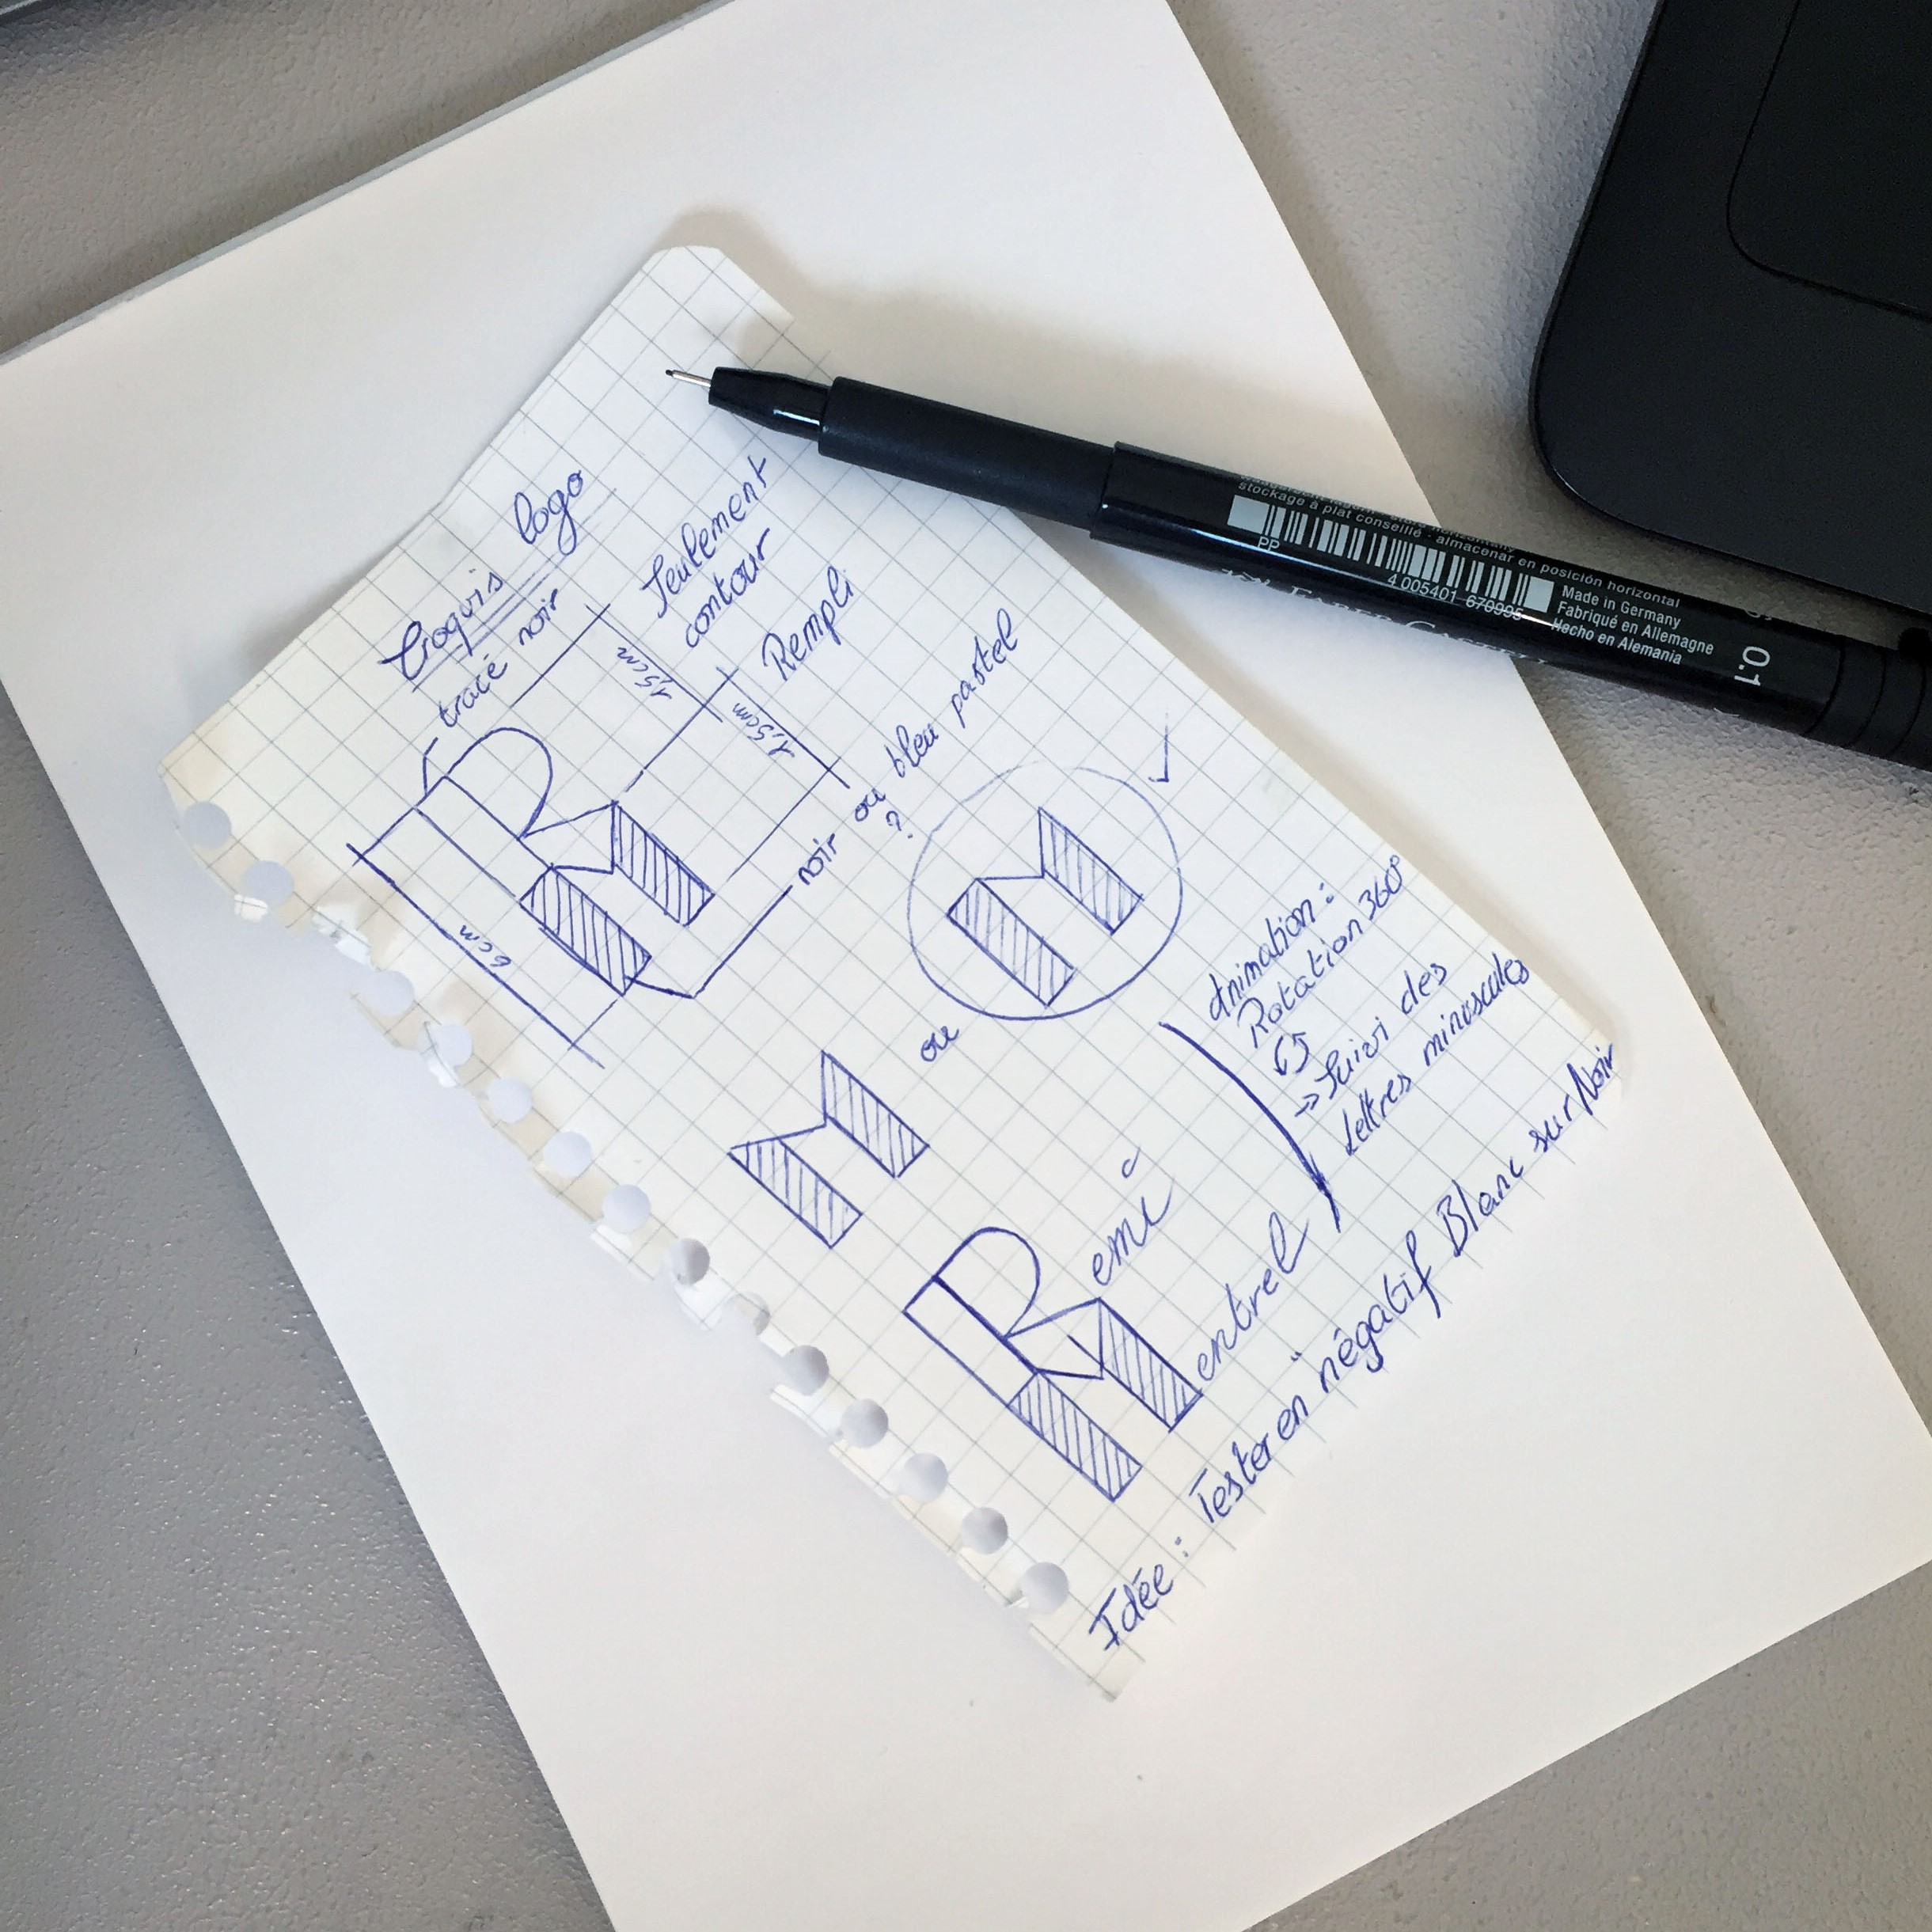 Croquis logo
tracé noir
1,5cm
Seulement
contour
1,5cm
Rempli
6cm
noir ou bleu pastel
?
R
M
ou
M
Animation :
Rotation 360°
→ Suivi des
lettres minuscules
Remi
Mentrel
Idée : Tester en "négatif Blanc sur Noir
stockage à plat conseillé · almacenar en posición horizontal
PP
4 005401 670995
Made in Germany
Fabriqué en Allemagne
Hecho en Alemania
FABER-CASTELL
0.1